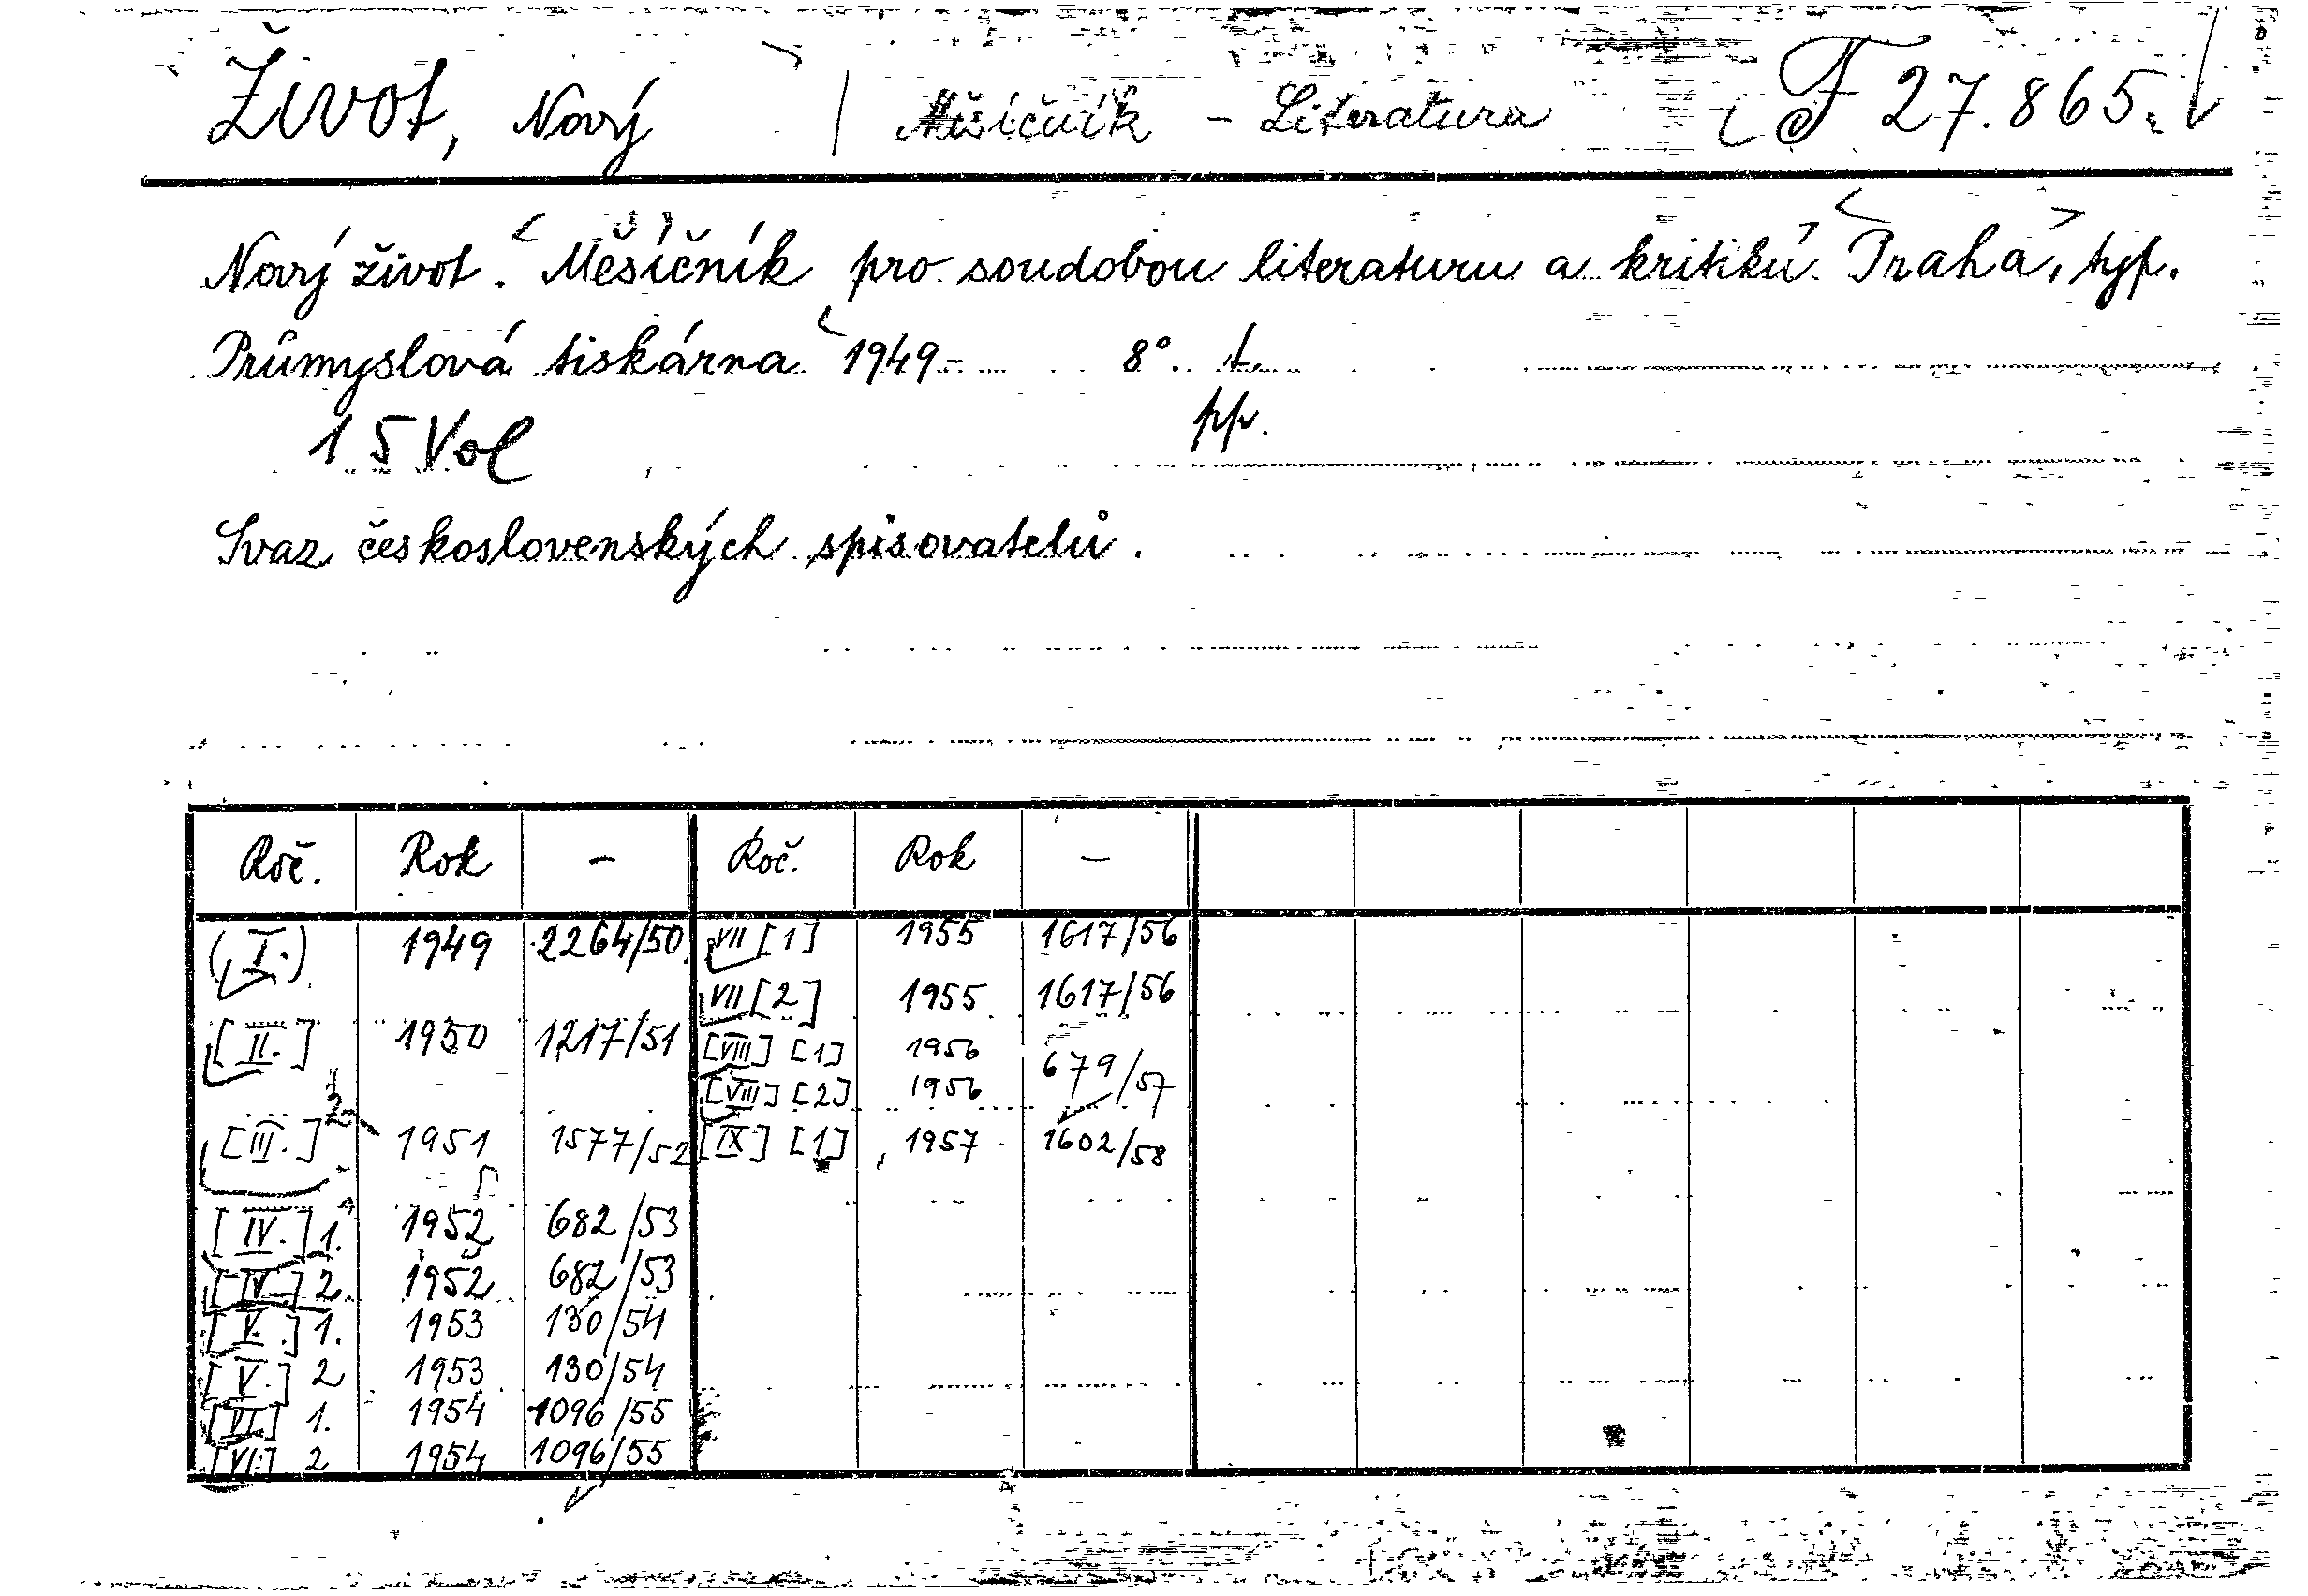 Život, Nový | Měsíčník - Literatura F 27.865.
Nový život. Měsíčník pro soudobou literaturu a kritiku. Praha, typ.
Průmyslová tiskárna 1949- 8°. t.
pp.
15 Vol
Svaz československých spisovatelů.
Roč. Rok - Roč. Rok -
(I.) 1949 2264/50 VII [1] 1955 1617/56
VII [2] 1955 1617/56
[II.] 1950 1217/51 [VIII] [1] 1956 679/57
[VIII] [2] 1956
[III.] 1951 1577/52 [IX] [1] 1957 1602/58
[IV.] 1. 1952 682/53
[IV.] 2. 1952 682/53
[V.] 1. 1953 130/54
[V.] 2 1953 130/54
[VI.] 1. 1954 1096/55
[VI.] 2 1954 1096/55